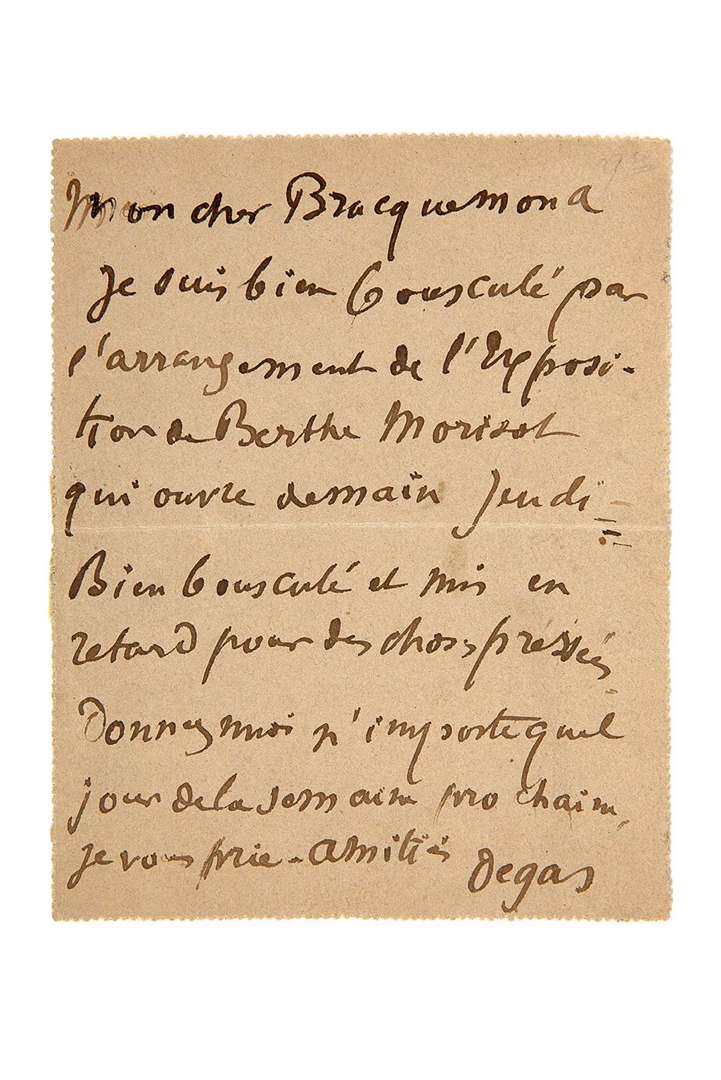 Mon cher Bracquemond
je suis bien bousculé par
l'arrangement de l'Exposi-
tion de Berthe Morisot
qui ouvre demain Jeudi-
Bien bousculé et mis en
retard pour des choses pressées
Donnez moi n'importe quel
jour de la semaine prochaine,
je vous prie - amitiés
Degas